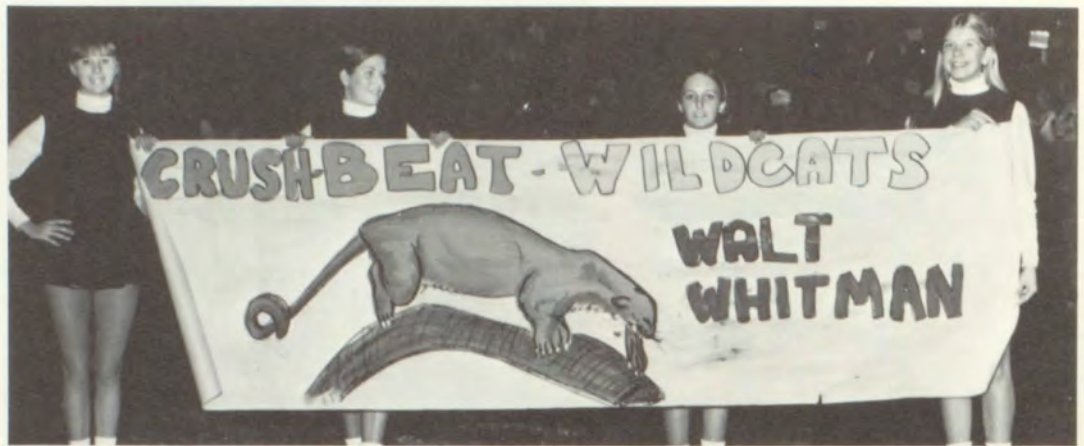 CRUSH-BEAT - WILDCATS
WALT
WHITMAN